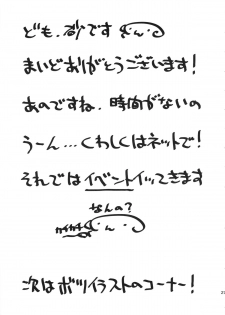 ども、砂です
まいどありがとうございます!
あのですね、時間がないの
うーん…くわしくはネットで!
それではイベントイッてきます
なんの?
次はボツイラストのコーナー!